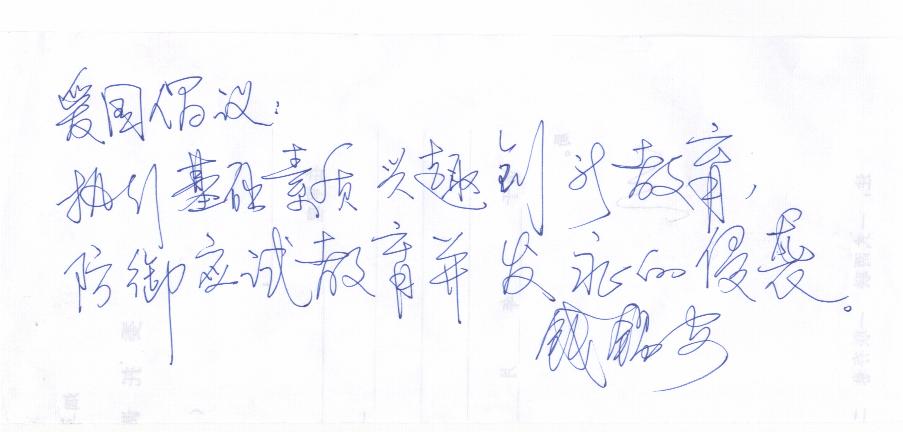 爱国倡议：
执行基础素质兴趣创新教育，
防御应试教育并发症的侵袭。